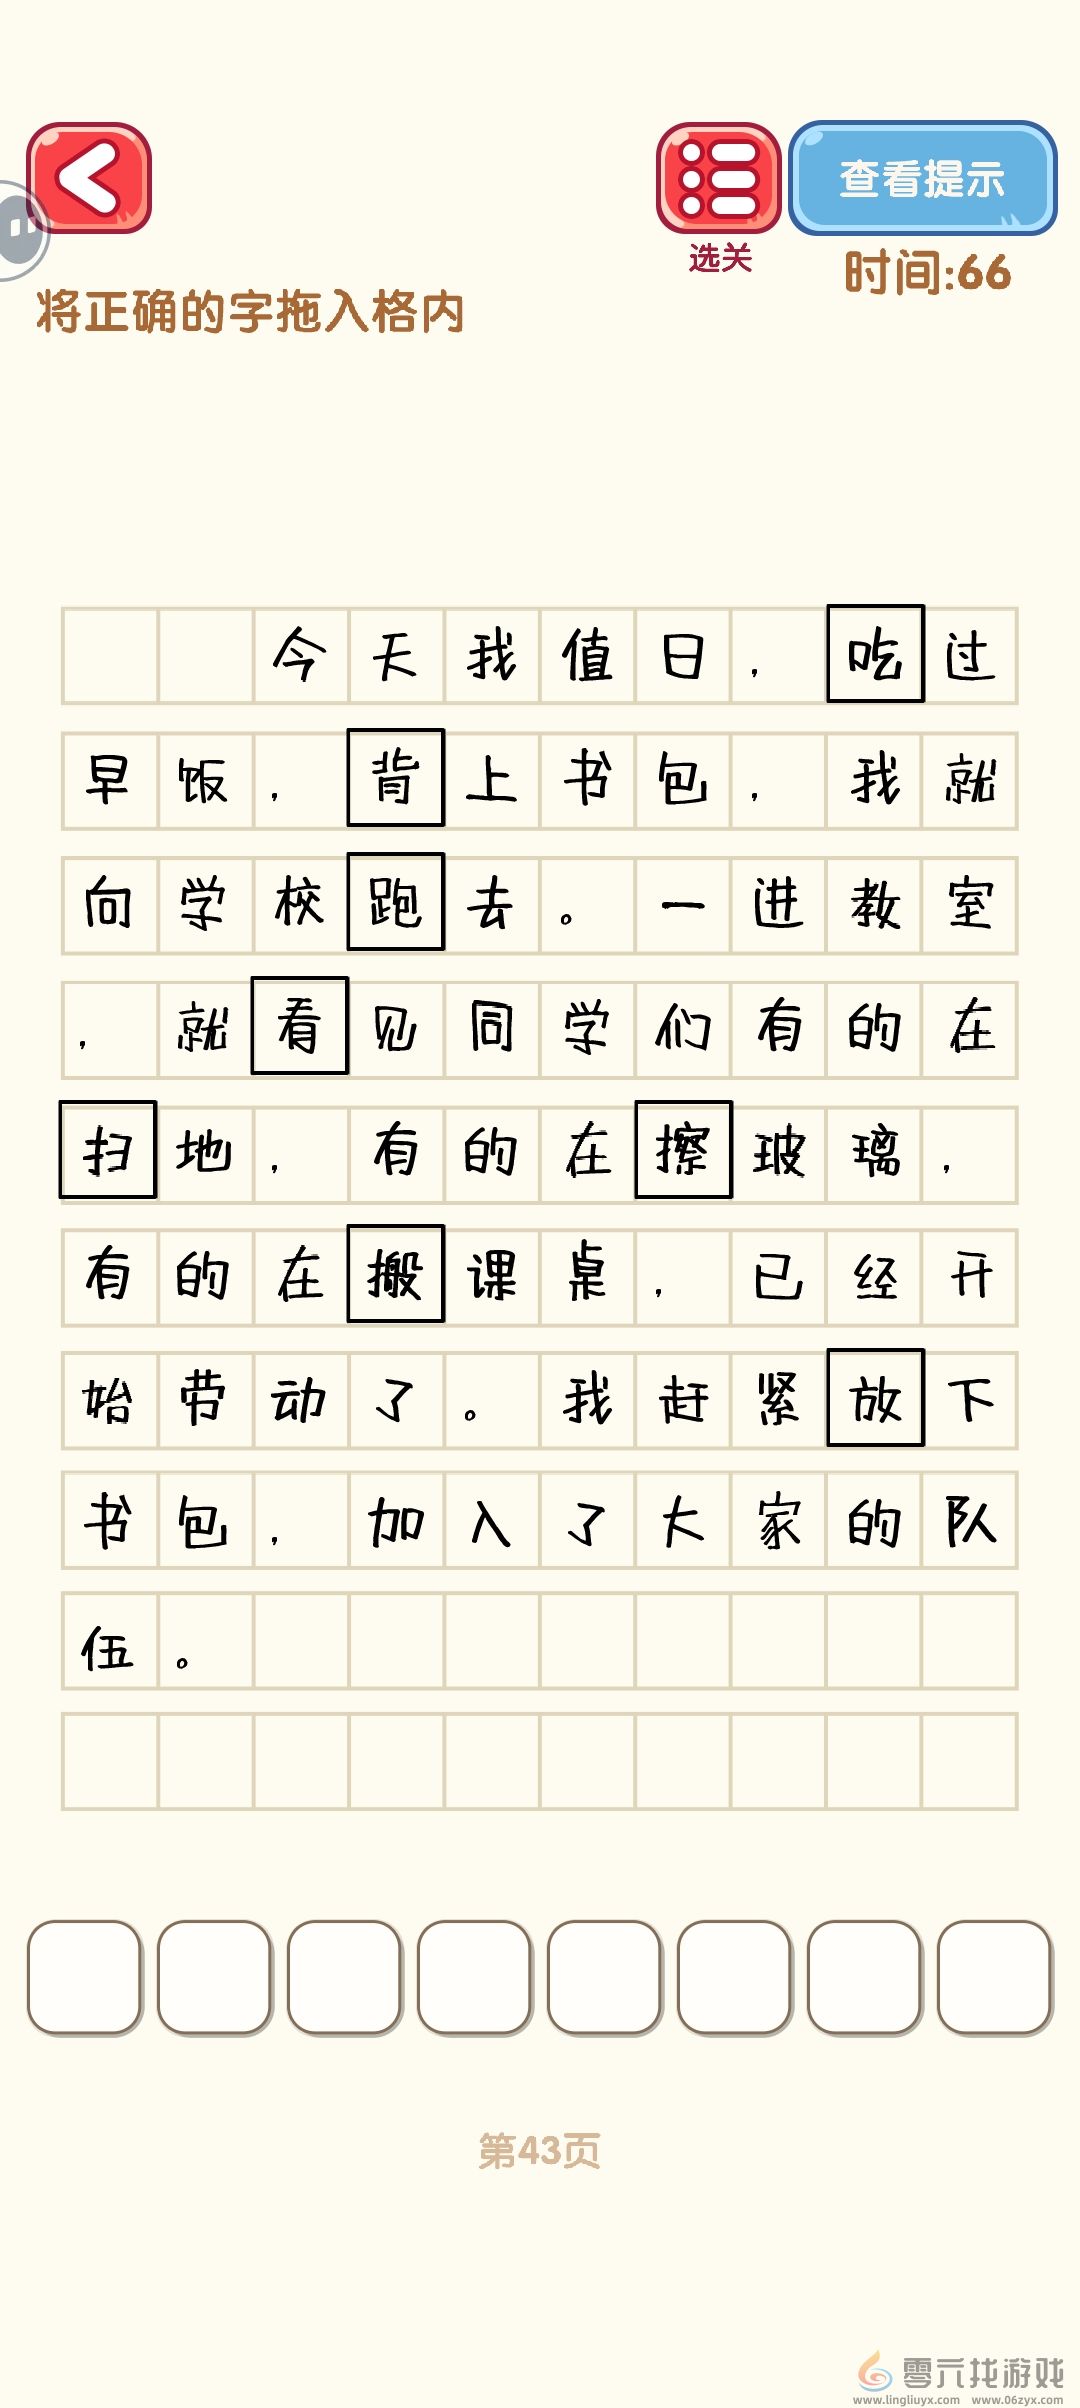 查看提示
选关
时间:66
将正确的字拖入格内
今天我值日，吃过
早饭，背上书包，我就
向学校跑去。一进教室
，就看见同学们有的在
扫地，有的在擦玻璃，
有的在搬课桌，已经开
始劳动了。我赶紧放下
书包，加入了大家的队
伍。
第43页
零元找游戏
www.lingliuyx.com www.06zyx.com